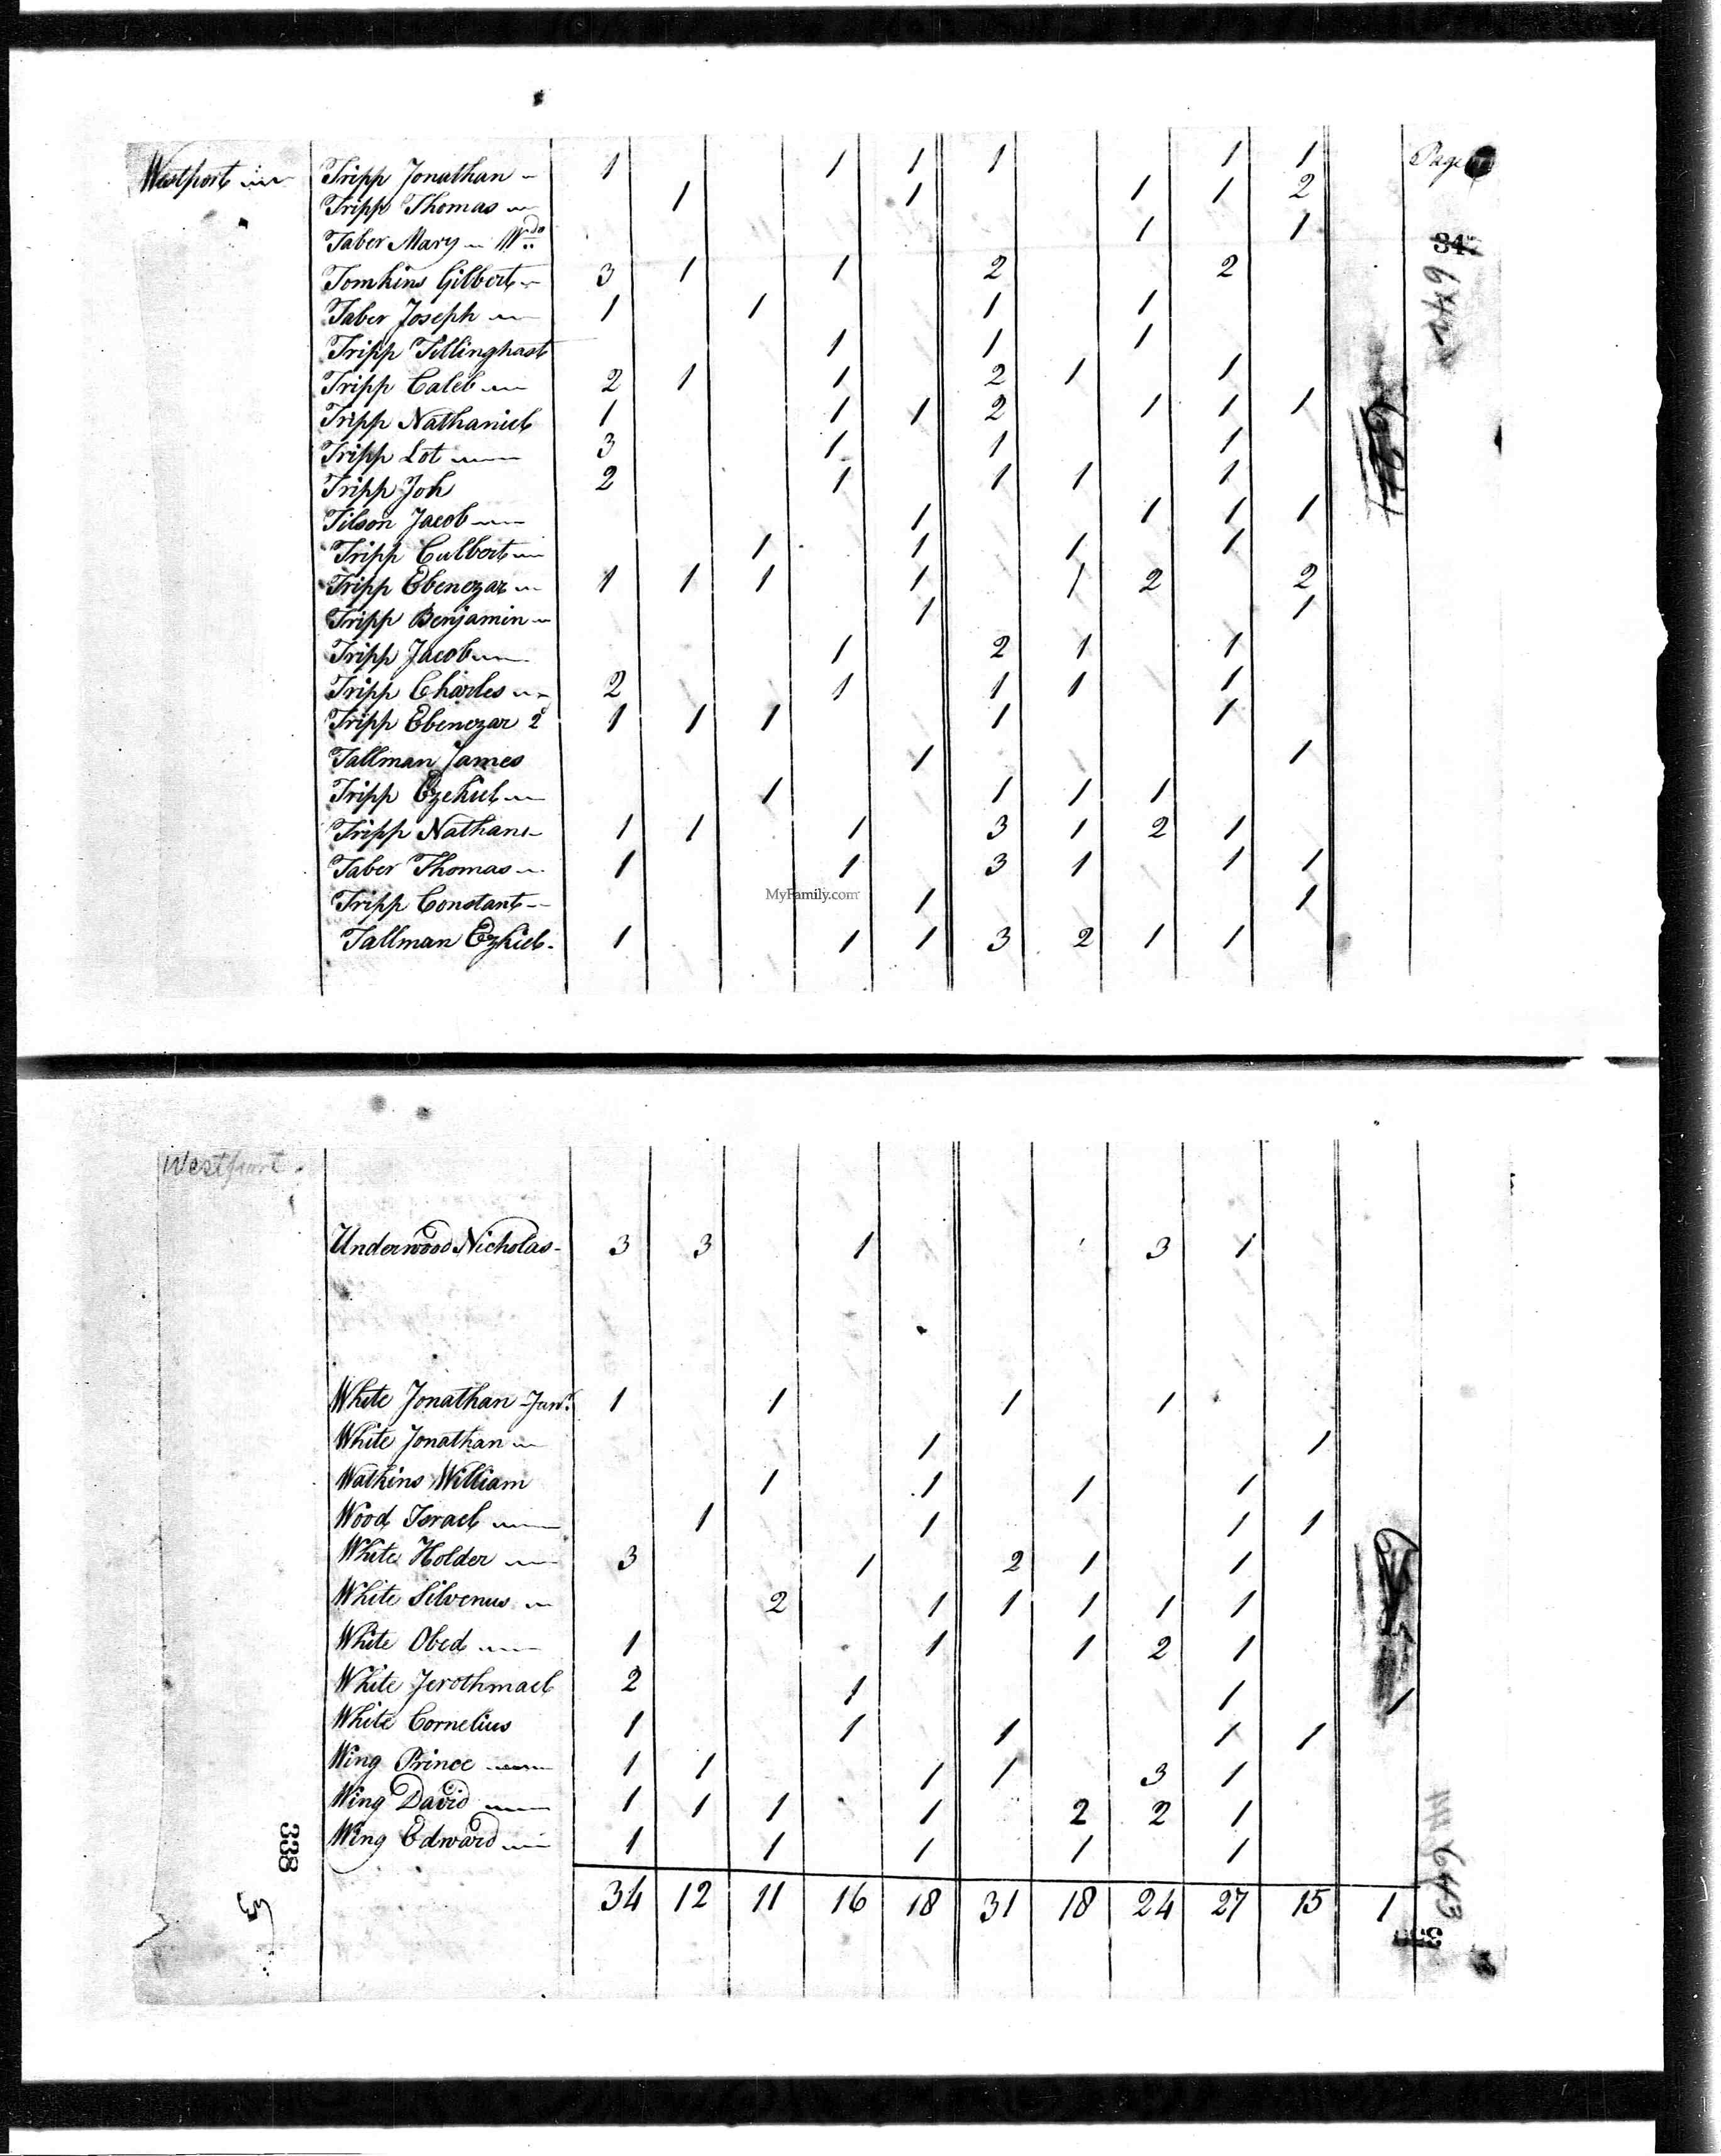 Westport Tripp Jonathan 1 1 1 1 1 1 Page
Tripp Thomas 1 1 1 1 2
Taber Mary Wdo 1 1
347
Tomkins Gilbert 3 1 1 2 2
Taber Joseph 1 1 1 1
Tripp Tillinghast 1 1 1
Tripp Caleb 2 1 1 2 1 1
Tripp Nathaniel 1 1 1 2 1 1 1
Tripp Lot 3 1 1 1
Tripp Job 2 1 1 1 1
Tilson Jacob 1 1 1 1
Tripp Culbert 1 1 1 1
Tripp Ebenezar 1 1 1 1 1 2 2
Tripp Benjamin 1 1
Tripp Jacob 1 2 1 1
Tripp Charles 2 1 1 1 1
Tripp Ebenezar 2d 1 1 1 1 1
Tallman James 1 1
Tripp Ezekiel 1 1 1 1
Tripp Nathan 1 1 1 3 1 2 1
Taber Thomas 1 1 3 1 1 1
MyFamily.com
Tripp Constant 1 1
Tallman Ezkiel 1 1 1 3 2 1 1
Westport
Underwood Nicholas 3 3 1 3 1
White Jonathan Junr. 1 1 1 1
White Jonathan 1 1
Watkins William 1 1 1 1
Wood Israel 1 1 1 1
White Holder 3 1 2 1 1
White Silvenus 2 1 1 1 1 1
White Obed 1 1 1 2 1
White Jerothmael 2 1 1 1
White Cornelius 1 1 1 1 1
Wing Prince 1 1 1 1 3 1
Wing David 1 1 1 1 2 2 1
Wing Edward 1 1 1 1 1
338
34 12 11 16 18 31 18 24 27 15 1
643